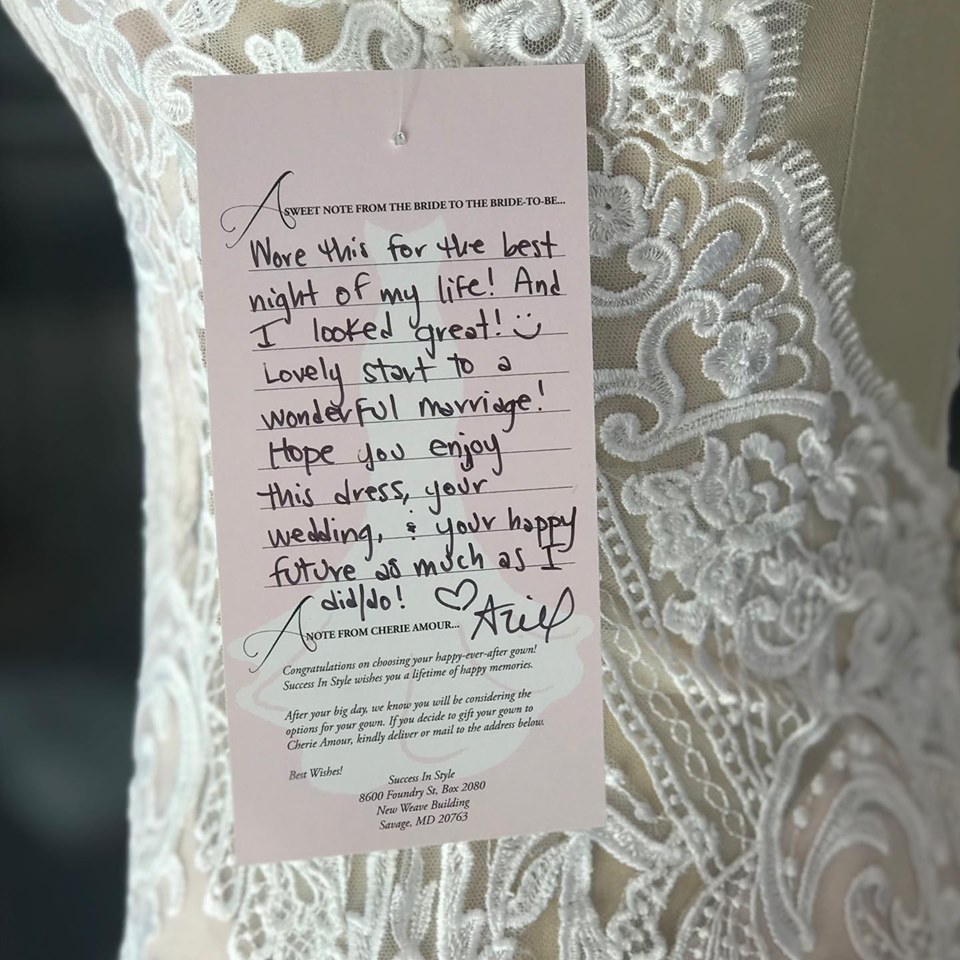 A SWEET NOTE FROM THE BRIDE TO THE BRIDE-TO-BE...
Wore this for the best
night of my life! And
I looked great! :)
Lovely start to a
wonderful marriage!
Hope you enjoy
this dress, your
wedding, & your happy
future as much as I
did/do! ♡ Ariel
A NOTE FROM CHERIE AMOUR...
Congratulations on choosing your happy-ever-after gown!
Success In Style wishes you a lifetime of happy memories.
After your big day, we know you will be considering the
options for your gown. If you decide to gift your gown to
Cherie Amour, kindly deliver or mail to the address below.
Best Wishes!
Success In Style
8600 Foundry St, Box 2080
New Weave Building
Savage, MD 20763